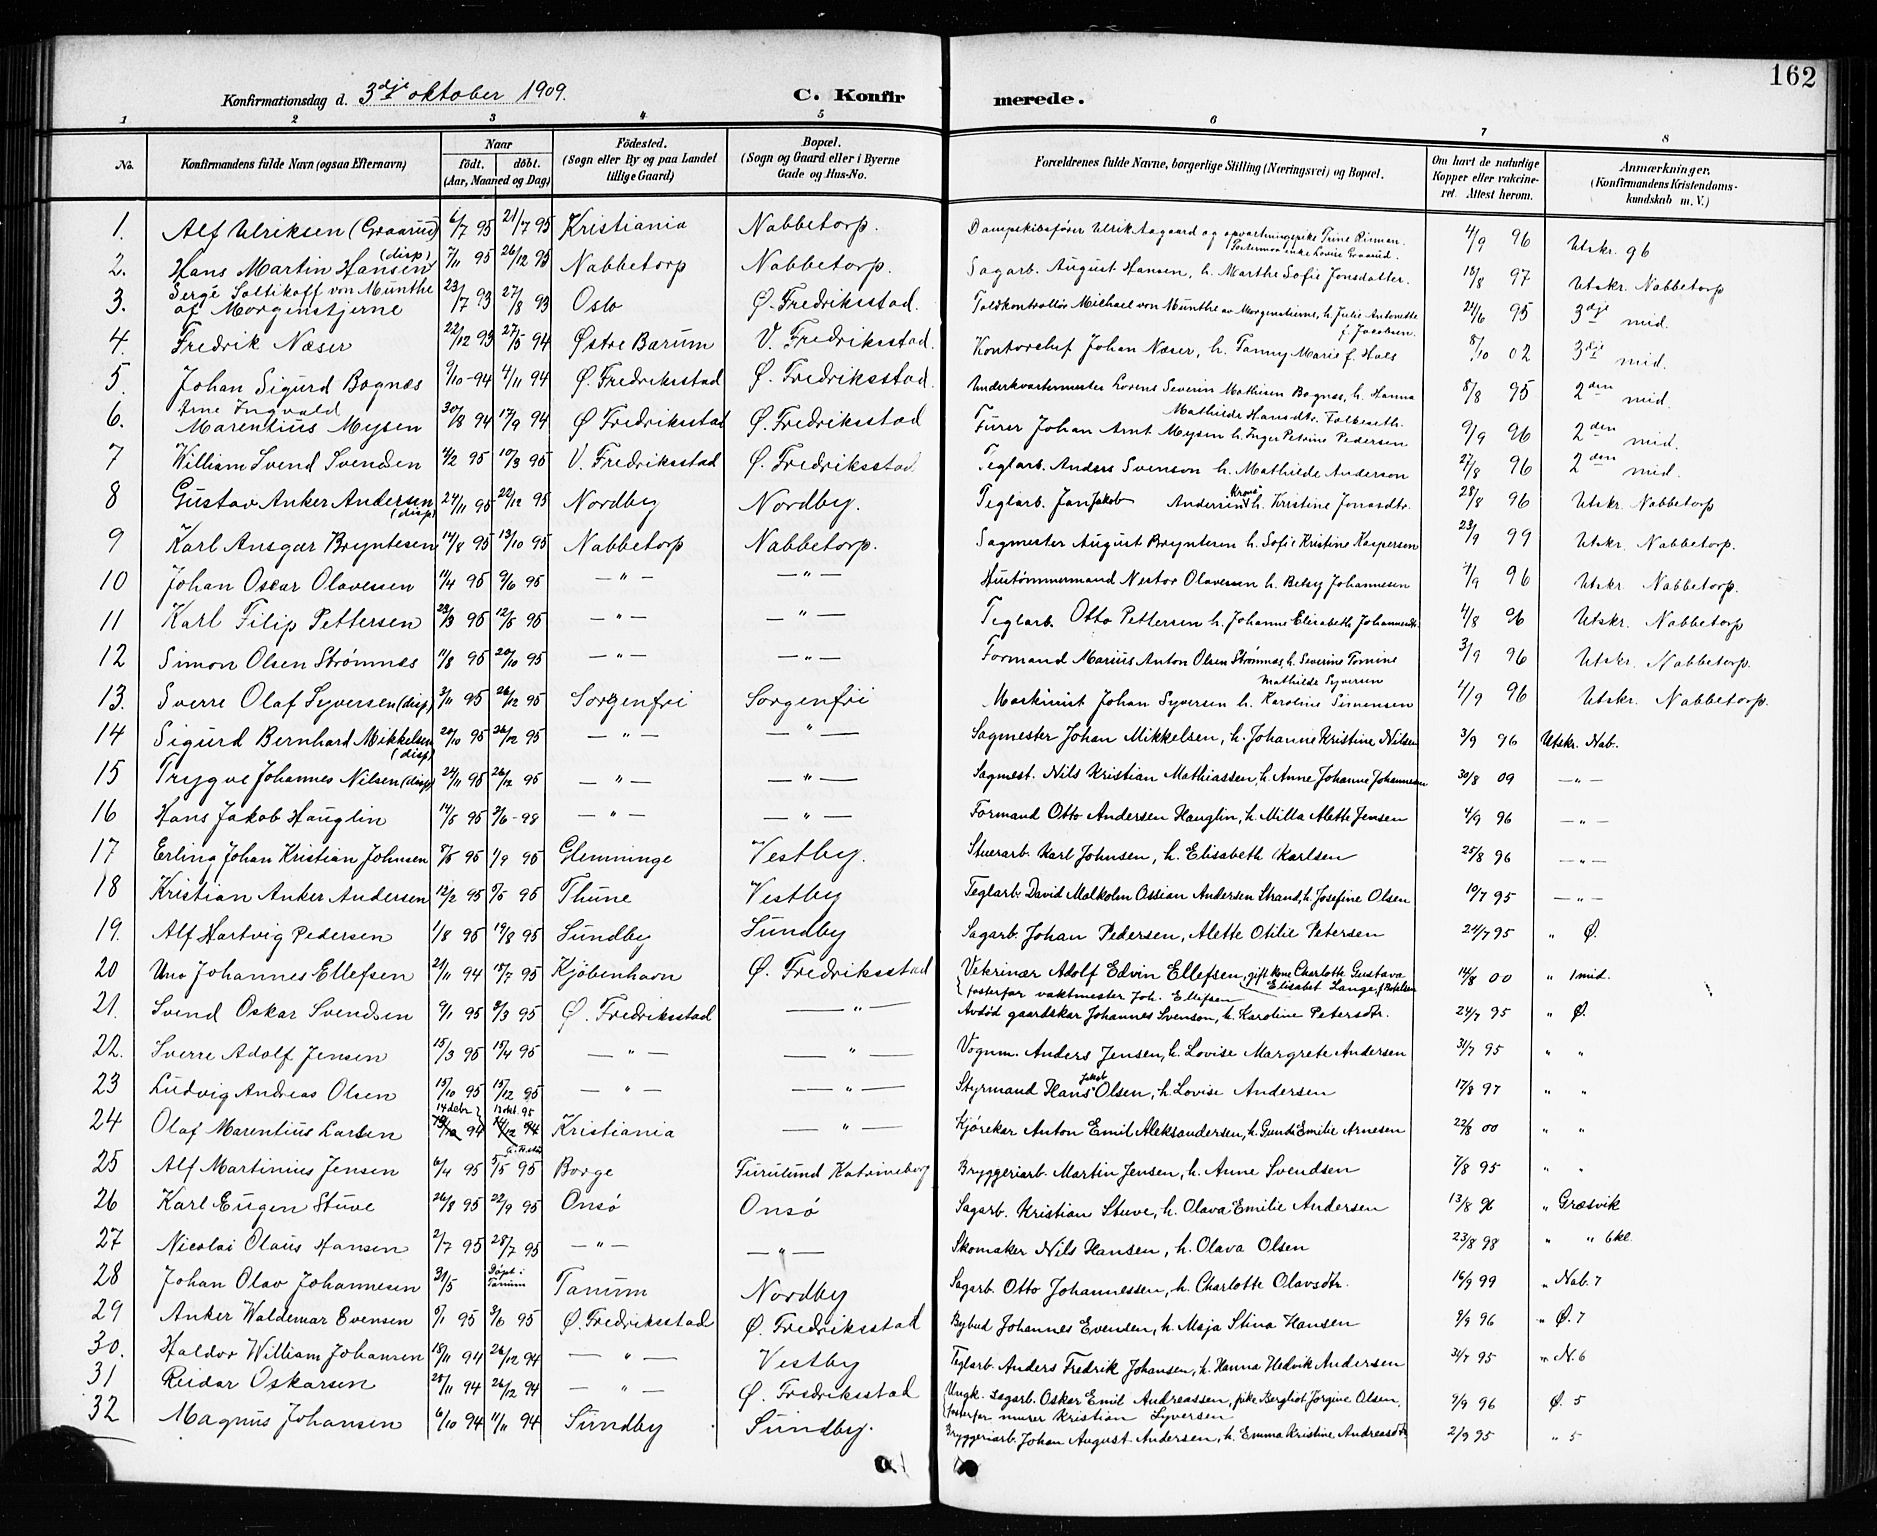 162
Konfirmationsdag d. 3dje oktober 1909. C. Konfirmerede.
1 2 3 4 5 6 7 8
No. Konfirmandens fulde Navn (ogsaa Efternavn) Naar født. døbt. (Aar, Maaned og Dag) Fødested. (Sogn eller By og paa Landet tillige Gaard) Bopæl. (Sogn og Gaard eller i Byerne Gade og Hus-No. Forældrenes fulde Navne, borgerlige Stilling (Næringsvei) og Bopæl. Om havt de naturlige Kopper eller vakcineret. Attest herom. Anmærkninger. (Konfirmandens Kristendomskundskab m. V.)
1. Alf Ulriksen (Graarud) 6/7 95 21/7 95 Kristiania Nabbetorp. Dampskibsfører Ulrik Aagaard og opvartningspike Trine Rinman. Fostermor enke Lovise Graarud. 4/9 96 Utskr. 96
2. Hans Martin Hansen (disp) 7/11 95 26/12 95 Nabbetorp Nabbetorp. Sagarb. August Hansen, h. Marthe Sofie Jonsdatter. 18/8 97 Utskr. Nabbetorp
3. Sergé Soltikoff von Munthe af Morgenstjerne 23/7 93 27/8 93 Oslo Ø. Fredriksstad. Toldkontrollør Michael von Munthe av Morgenstierne, h. Julie Antonette f. Jacobsen. 24/6 95 3dje mid.
4. Fredrik Næser 22/12 93 27/5 94 Østre Bærum V. Fredriksstad. Kontorchef Johan Næser, h. Fanny Marie f. Hals 8/10 02 3dje mid.
5. Johan Sigurd Bognæs 9/10-94 4/11 94 Ø. Fredriksstad Ø. Fredriksstad. Underkvartermester Lorens Severin Mathisen Bognæs, h. Hanna Mathilde Hansdtr. Folbeseth. 8/8 95 2den mid.
6. Arne Ingvald Marentius Mysen 30/8 94 17/9 94 Ø Fredriksstad Ø. Fredriksstad Furer Johan Arnt Mysen h. Inger Petrine Pedersen 9/9 96 2den mid.
7 William Svend Svendsen 4/2 95 10/3 95 V. Fredriksstad Ø. Fredriksstad Teglarb. Anders Svenson h. Mathilde Anderson 27/8 96 2den mid.
8 Gustav Anker Andersen (disp) 24/11 95 22/12 95 Nordby Nordby. Teglarb. Jan Jakob Andersen h. Kristine Jonasdtr. 28/8 96 Utskr. Nabbetorp
9 Karl Ansgar Bryntesen 14/8 95 13/10 95 Nabbetorp Nabbetorp. Sagmester August Bryntesen h. Sofie Kristine Kaspersen 23/9 99 Utskr. Nabbetorp.
10 Johan Oscar Olavesen 11/4 95 9/6 95 — " — — " — Hustømmermand Nestor Olavesen h. Betsy Johannesen 4/9 96 Utskr. Nabbetorp.
11 Karl Filip Pettersen 23/3 95 12/5 95 — " — — " — Teglarb. Otto Pettersen h. Johanne Elisabeth Johannesdtr. 4/8 96 Utskr. Nabbetorp
12 Simon Olsen Strømnæs 11/8 95 20/10 95 — " — — " — Formand Marius Anton Olsen Strømnæs, h. Severine Tomine Mathilde Syversen 3/9 96 Utskr. Nabbetorp.
13. Sverre Olaf Syversen (disp) 3/11 95 26/12 95 Sorgenfri Sorgenfri Maskinist Johan Syversen h. Karoline Simensen 4/9 96 Utskr. Nabbetorp.
14 Sigurd Bernhard Mikkelsen (disp) 20/10 95 26/12 95 — " — — " — Sagmester Johan Mikkelsen, h. Johanne Kristine Nilsen 3/9 96 Utskr. Nab.
15 Trygve Johannes Nilsen (disp) 24/11 95 26/12 95 — " — — " — Sagmest. Nils Kristian Mathiassen, h. Anne Johanne Johannesen 30/8 09 — " —
16 Hans Jakob Hauglin 14/5 95 3/6-98 — " — — " — Formand Otto Andersen Hauglin, h. Milla Alette Jensen 4/9 96 — " —
17 Erling Johan Kristian Johnsen 7/5 95 1/9 95 Glemminge Vestby. Stuerarb. Karl Johnsen, h. Elisabeth Karlsen 25/8 96 — " —
18 Kristian Anker Andersen 12/2 95 5/5 95 Thune Vestby Teglarb. David Malkolm Ossian Andersen Strand, h. Josefine Olsen 19/7 95 — " —
19. Alf Hartvig Pedersen 1/8 95 19/8 95 Sundby Sundby Sagarb. Johan Pedersen, Alette Otilie Petersen 24/7 95 " Ø.
20 Uno Johannes Ellefsen 21/11 94 15/7 95 Kjøbenhavn Ø. Fredriksstad Veterinær Adolf Edvin Ellefsen, gift kone Charlotte Gustava Elisabet Lange, fosterfar vaktmester Joh. Ellefsen 14/8 00 " 1 mid.
21. Svend Oskar Svendsen 9/1 95 3/3 95 Ø. Fredriksstad — " — Avdød gaardskar Johannes Svenson, h. Karoline Petersdtr. 24/7 95 " Ø.
22. Sverre Adolf Jensen 15/3 95 15/4 95 — " — — " — Vognm. Anders Jensen, h. Lovise Margrete Andersen 31/7 95 " "
23 Ludvig Andreas Olsen 15/10 95 15/12 95 — " — — " — Styrmand Hans Jakob Olsen, h. Lovise Andersen 17/8 97 " "
24 Olaf Marentius Larsen 14 debr 94 13 okt. 95 Kristiania — " — Kjørekar Anton Emil Aleksandersen, h. Gunda Emilie Arnesen 22/8 00 " "
25 Alf Martinius Jensen 6/4 95 5/5 95 Borge Furulund Katrineborg Bryggeriarb. Martin Jensen, h. Anne Svendsen 7/8 95 " "
26 Karl Eugen Stuve 26/8 95 22/9 95 Onsø Onsø Sagarb. Kristian Stuve, h. Olava Emilie Andersen 13/8 96 " Græsvik
27 Nicolai Olaus Hansen 2/7 95 28/7 95 — " — — " — Skomaker Nils Hansen, h. Olava Olsen 23/8 98 " " 6 kl.
28 Johan Olav Johannesen 31/5 Døpt i Tanum Tanum Nordby Sagarb. Otto Johannessen, h. Charlotte Olavsdtr. 16/9 99 " Nab. 7
29 Anker Waldemar Evensen 5/1 95 3/6 95 Ø. Fredriksstad Ø. Fredriksstad Bybud Johannes Evensen, h. Maja Stina Hansen 8/9 96 " Ø. 7
30. Haldor William Johansen 18/11 94 26/12 94 — " — Vestby Teglarb. Anders Fredrik Johansen, h. Hanna Hedvik Andersen 31/7 95 " N. 6
31 Reidar Oskarsen 25/11 94 26/12 94 — " — Ø. Fredriksstad Ungk. sagarb. Oskar Emil Andreassen, pike Bergliot Jørgine Olsen, fosterfar murer Kristian Syversen 9/9 96 Ø. 5
32 Magnus Johansen 6/10 94 11/11 94 Sundby Sundby. Bryggeriarb. Johan August Andersen, h. Emma Kristine Andreasdtr 2/9 95 " 5